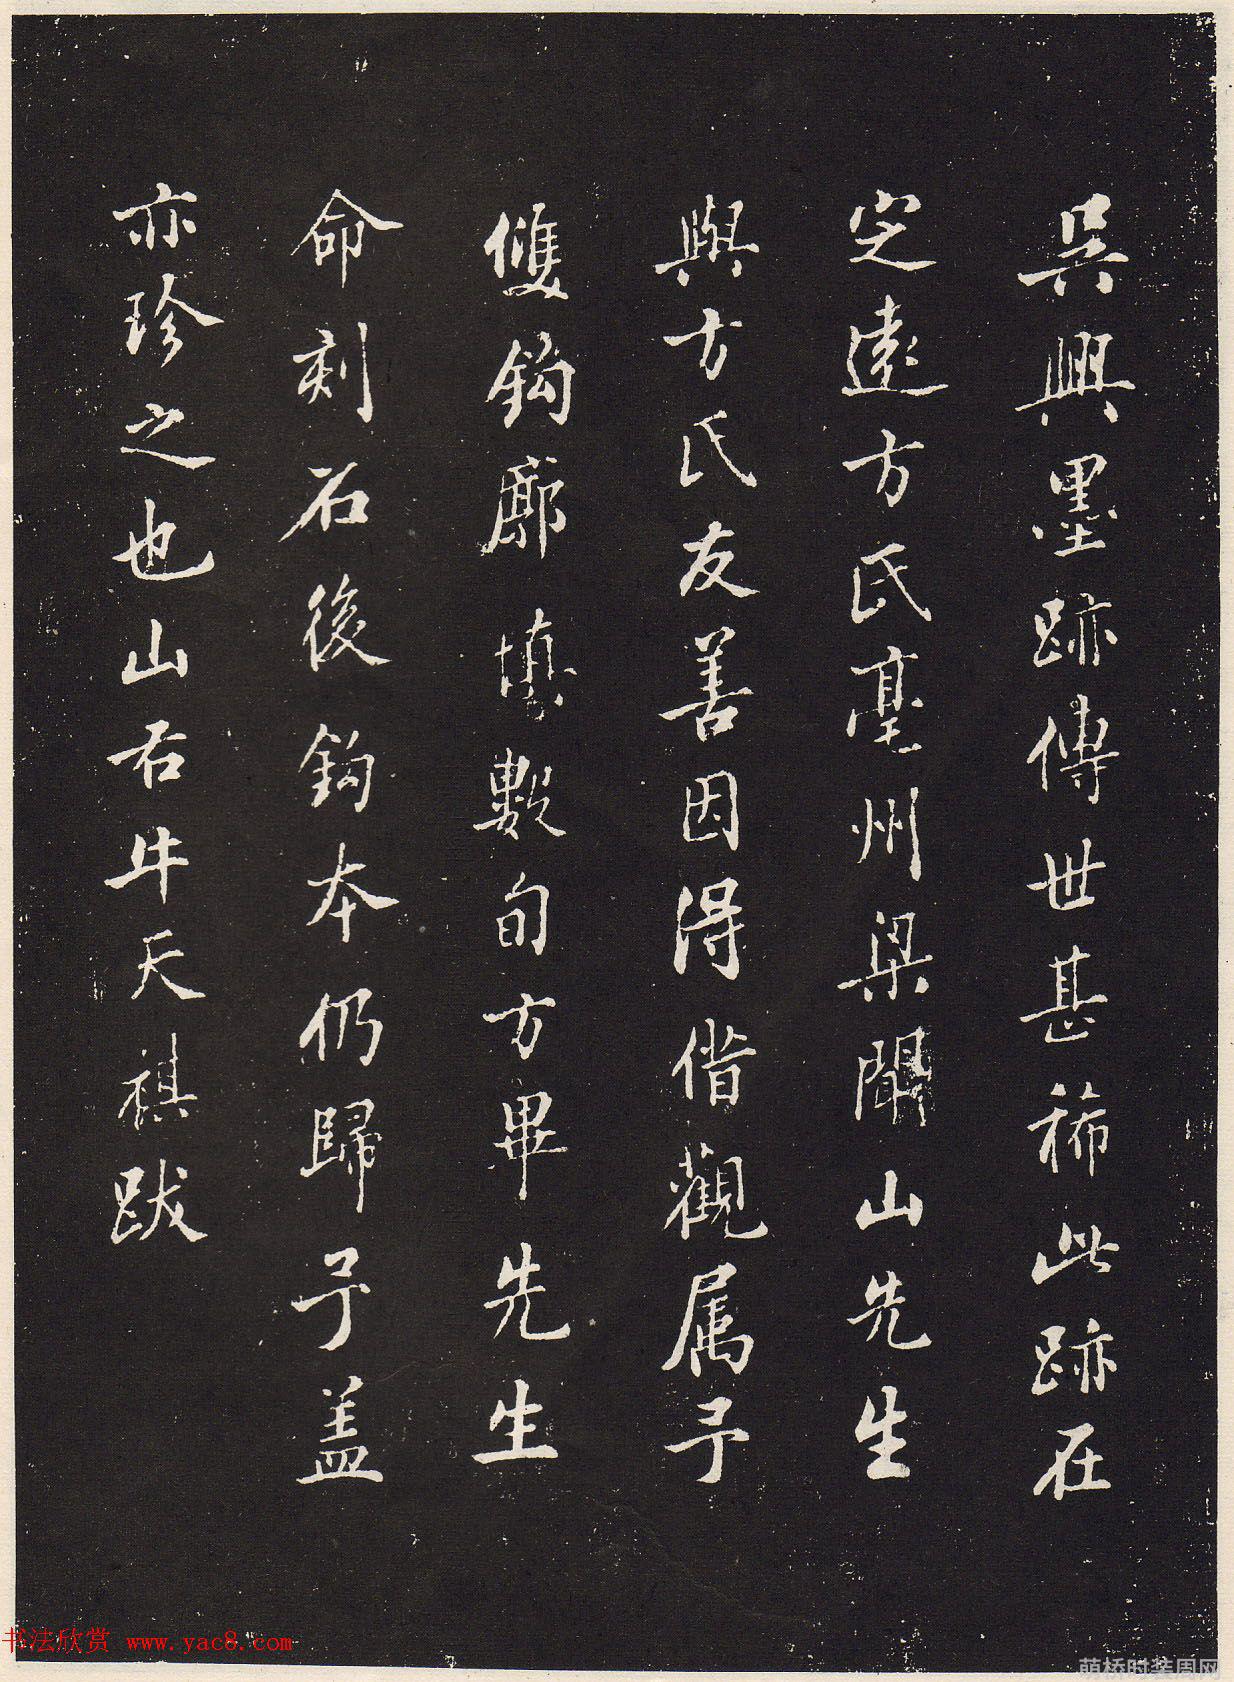 吳興墨跡傳世甚稀此跡在
定遠方氏亳州梁聞山先生
與方氏友善因得借觀属予
雙鈎廓填數旬方畢先生
命刻石後鈎本仍歸予盖
亦珍之也山右牛天祺跋
书法欣赏 www.yac8.com
萌桥时装周网